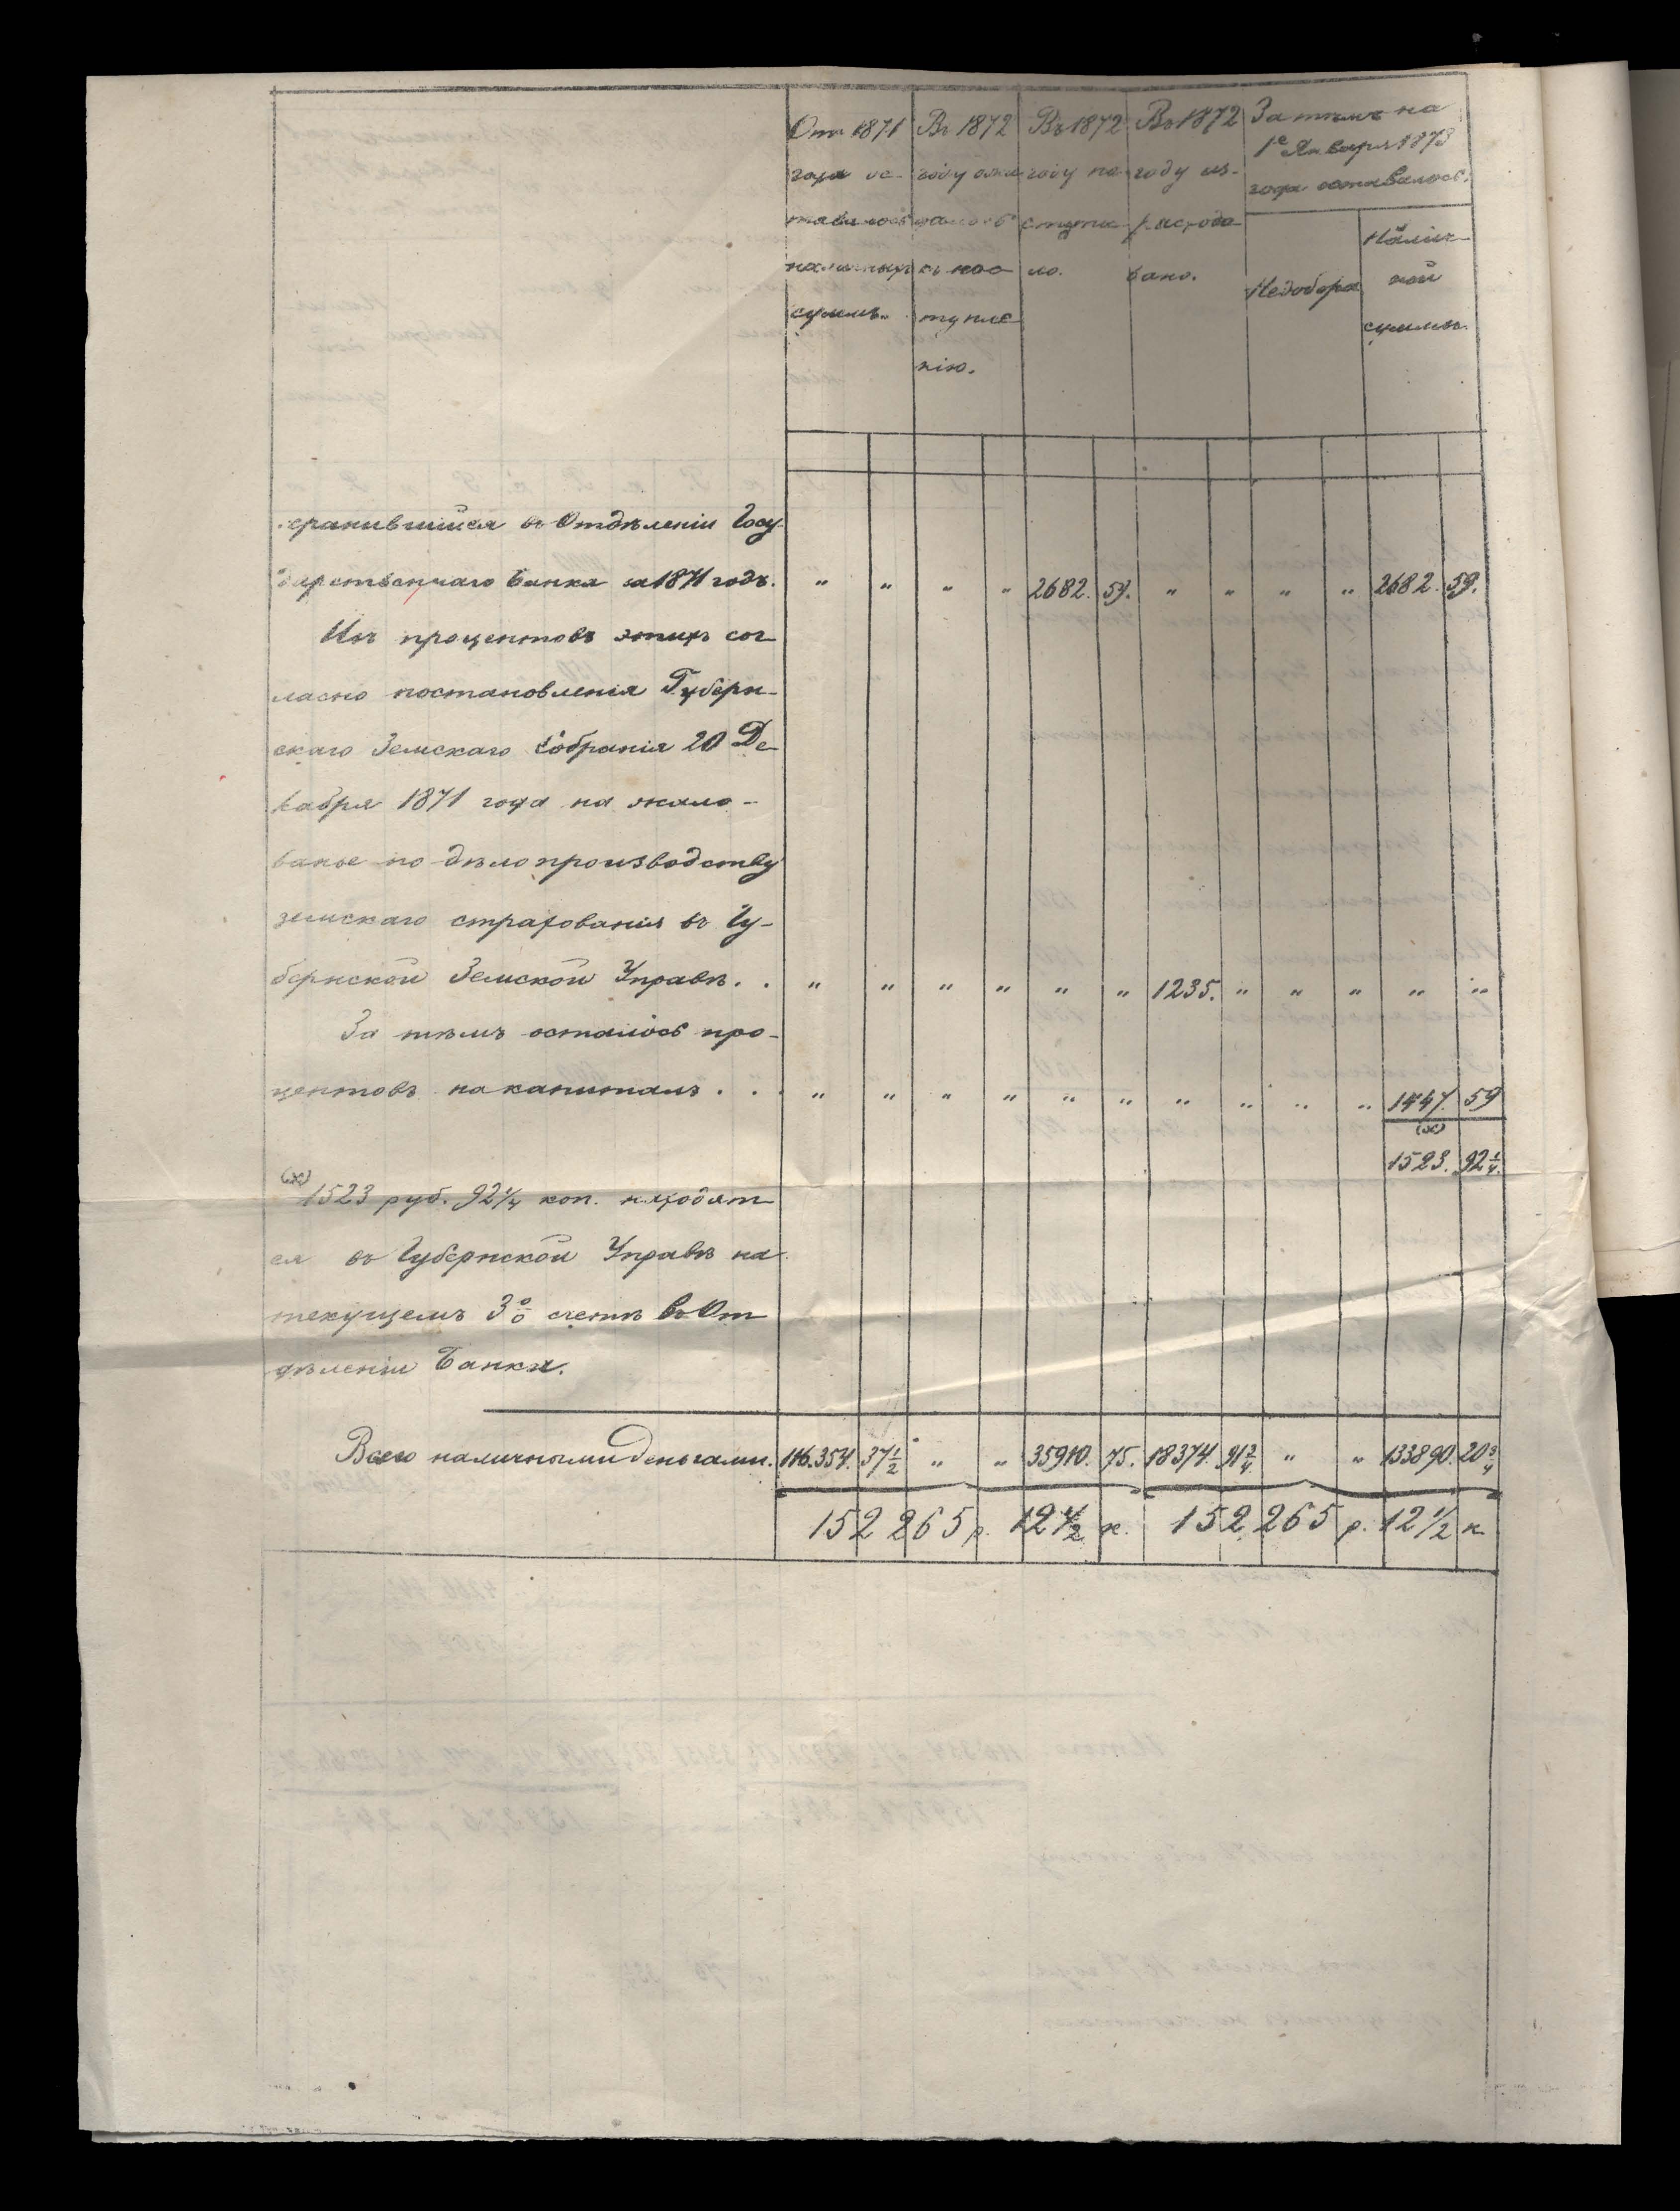 Отъ 1871 года оставалось наличныхъ суммъ.
Въ 1872 году ожидалось къ поступленію.
Въ 1872 году поступило.
Въ 1872 году израсходовано.
За тѣмъ на 1е Января 1873 года оставалось:
Недобора
Наличной суммы.
хранившійся въ Отдѣленіи Госу-
дарственнаго Банка за 1871 годъ. " " " " 2682. 59. " " " " 2682. 59.
Изъ процентовъ этихъ сог-
ласно постановленія Губерн-
скаго Земскаго Собранія 20 Де-
кабря 1871 года на жало-
ванье по дѣлопроизводству
земскаго страхованія въ Гу-
бернской Земской Управѣ. . " " " " " " 1235. " " " " "
За тѣмъ осталось про-
центовъ на капиталъ . . . " " " " " " " " " " 1447. 59
(х)
1523. 92 1/4.
(х)
1523 руб. 92 1/4 коп. находят-
ся въ Губернской Управѣ на
текущемъ 3% счетѣ въ От
дѣленіи Банка.
Всего наличными деньгами. 116.354. 37 1/2 " " 35910. 75. 18374. 91 3/4 " " 133890. 20 3/4
152 265 р. 12 1/2 к. 152 265 р. 12 1/2 к.